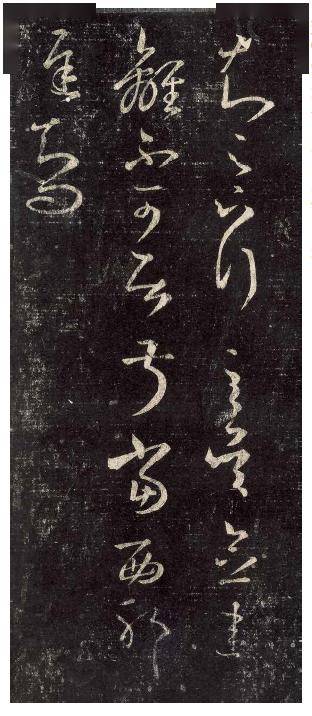 知足下行至吳念違
離不可居叔當西耶
遲知問